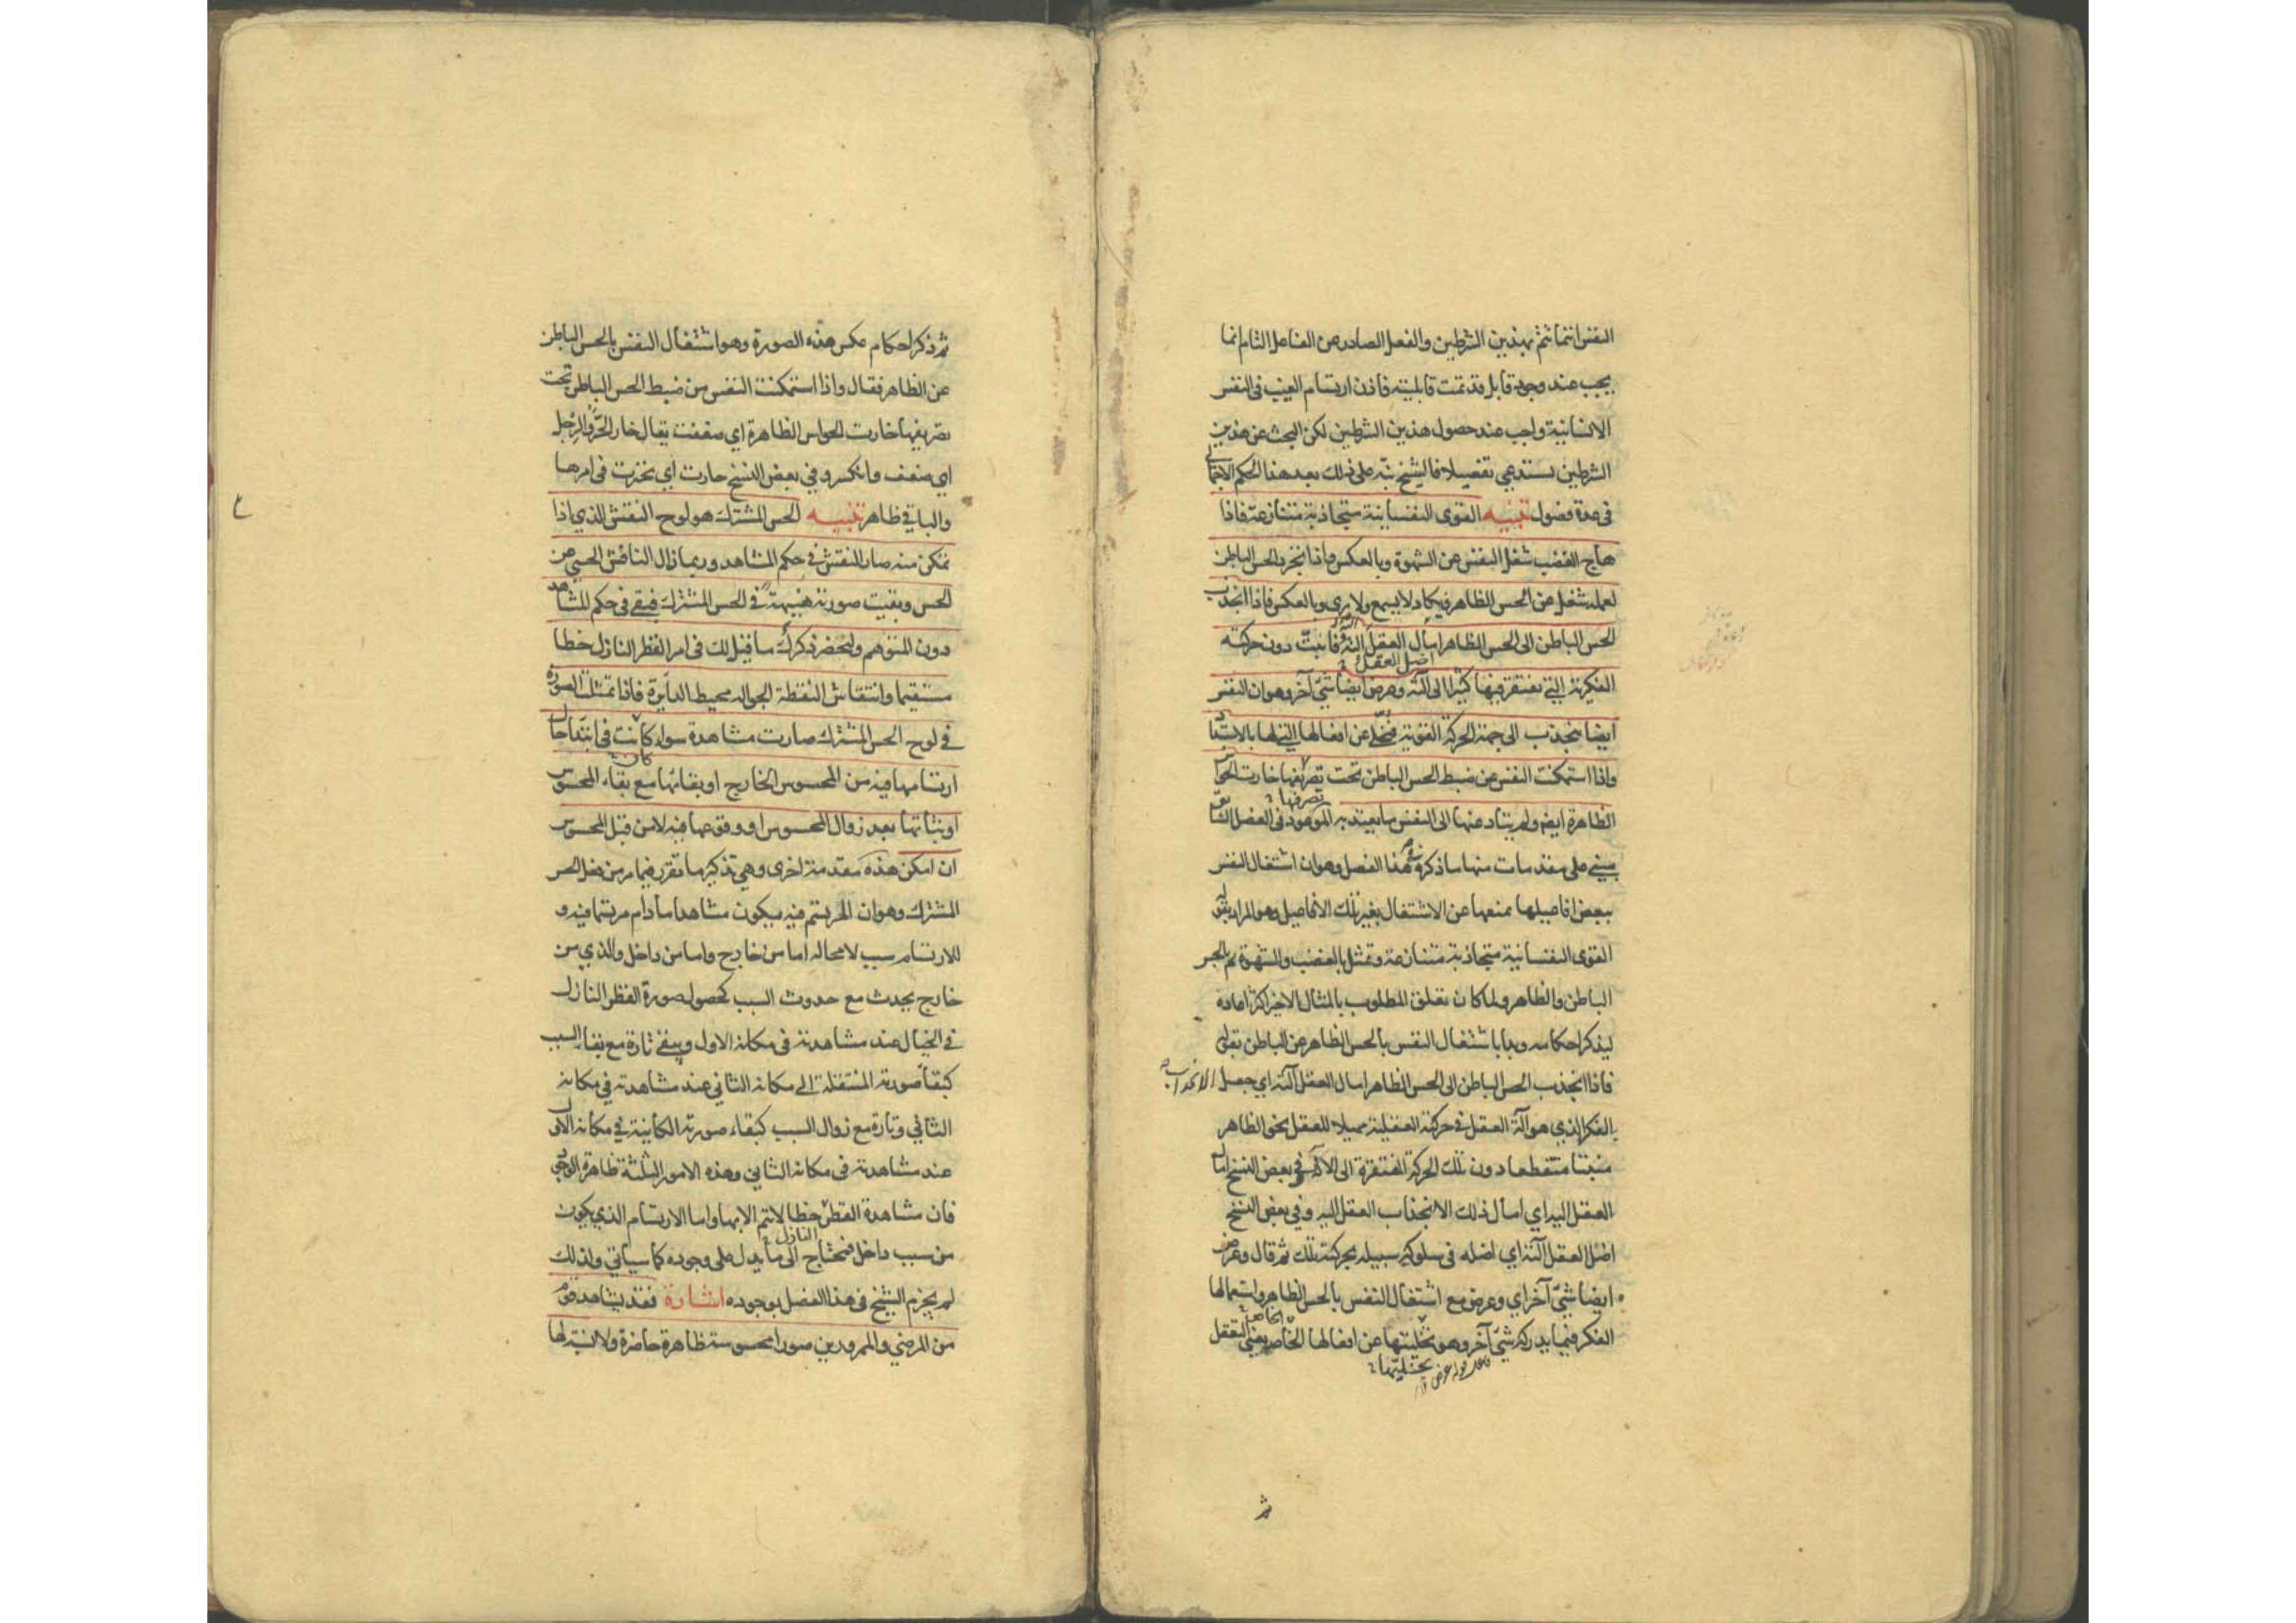 النفس انما تتم بهذين الشرطين والفعل الصادر عن الفاعل التام انما
يجب عند وجود قابل قد تمت قابليته فاذن ارتسام الغيب فى النفس
الانسانية واجب عند حصول هذين الشرطين لكن البحث عن هذين
الشرطين يستدعي تفصيلا فالشيخ نبّه على ذلك بعد هذا الحكم الاجمالي
فى عدة فصول تنبيه القوى النفسانية متجاذبة متنازعة فاذا
هاج الغضب شغل النفس عن الشهوة وبالعكس واذا تجرد الحس الباطن
لعمله شغل عن الحس الظاهر فيكاد لا يسمع ولا يرى وبالعكس فاذا انجذب
الحس الباطن الى الحس الظاهر امال العقل آلته فانبتّ دون حركته
اضل العقل
الفكرية التي تفتقر فيها كثيرا الى آلته وعرض ايضا شئ آخر وهو ان النفس
ايضا تنجذب الى جهة الحركة القوية فتخلّى عن افعالها التي لها بالاستبداد
واذا استمكنت النفس عن ضبط الحس الباطن تحت تصريفها خارت الحواس
تصرفها
الظاهرة ايضا ولم يتاد عنها الى النفس ما يعتد به الموعود فى الفصل السابق
يبتنى على مقدمات منها ما ذكره فى هذا الفصل وهو ان اشتغال النفس
ببعض افاعيلها يمنعها عن الاشتغال بغير تلك الافاعيل وهو المراد بقوله
القوى النفسانية متجاذبة متنازعة وتمثل بالغضب والشهوة ثم بالحس
الباطن والظاهر ولما كان تعلق المطلوب بالمثال الاخير اكثر اعاده
ليذكر احكامه وبدا باشتغال النفس بالحس الظاهر عن الباطن بقوله
فاذا انجذب الحس الباطن الى الحس الظاهر امال العقل آلته اي جعل الانجذاب
الفكر الذي هو آلة العقل فى حركته العقلية مميلا للعقل نحو الظاهر
منبتا منقطعا دون تلك الحركة المفتقرة الى الآلة وفي بعض النسخ امال
العقل اليه اي امال ذلك الانجذاب العقل اليه وفي بعض النسخ
اضل العقل آلته اي اضله فى سلوكه سبيله بحركته تلك ثم قال وعرض
ايضا شئ آخر اي وعرض مع اشتغال النفس بالحس الظاهر واستعمالها
الفكر فيما يدركه شئ آخر وهو تخليتها عن افعالها الخاصة يعني التعقل
بتخليتها
ثم
ثم ذكر احكام عكس هذه الصورة وهو اشتغال النفس بالحس الباطن
عن الظاهر فقال واذا استمكنت النفس من ضبط الحس الباطن تحت
تصريفها خارت الحواس الظاهرة اي ضعفت يقال خار الحر والرجل
اي ضعف وانكسر وفي بعض النسخ حارت اي تحيرت فى امرها
والباقي ظاهر تنبيه الحس المشترك هو لوح النقش الذي اذا
تمكن منه صار النقش في حكم المشاهد وربما زال الناقش الحسي عن
الحس وبقيت صورته هنيهة في الحس المشترك فبقى فى حكم المشاهد
دون المتوهم وليحضر ذكرك ما قيل لك فى امر القطر النازل خطا
مستقيما وانتقاش النقطة الجوالة محيط الدائرة فاذا تمثلت الصورة
في لوح الحس المشترك صارت مشاهدة سواء كانت فى ابتداء حال
كان
ارتسامها فيه من المحسوس الخارج او بقائها مع بقاء المحسوس
او ثباتها بعد زوال المحسوس او وقوعها فيه لا من قبل المحسوس
ان امكن هذه مقدمة اخرى وهي تذكير ما تقرر فيما مر من فعل الحس
المشترك وهو ان المرتسم فيه يكون مشاهدا ما دام مرتسما فيه و
للارتسام سبب لا محالة اما من خارج واما من داخل والذي من
خارج يحدث مع حدوث السبب كحصول صورة القطر النازل
في الخيال عند مشاهدته فى مكانه الاول ويبقى تارة مع بقاء السبب
كبقاء صورته المنتقلة الى مكانه الثاني عند مشاهدته في مكانه
الثاني وتارة مع زوال السبب كبقاء صورته الكاينة في مكانه الاول
عند مشاهدته فى مكانه الثاني وهذه الامور الثلثة ظاهرة الوجود
فان مشاهدة القطر خطا لا تتم الا بها واما الارتسام الذي يكون
النازل
من سبب داخل فمحتاج الى ما يدل على وجوده كما سياتي ولذلك
لم يجزم الشيخ فى هذا الفصل بوجوده اشارة فقد يشاهد قوم
من المرضى والممرورين صورا محسوسة ظاهرة حاضرة ولا نسبة لها